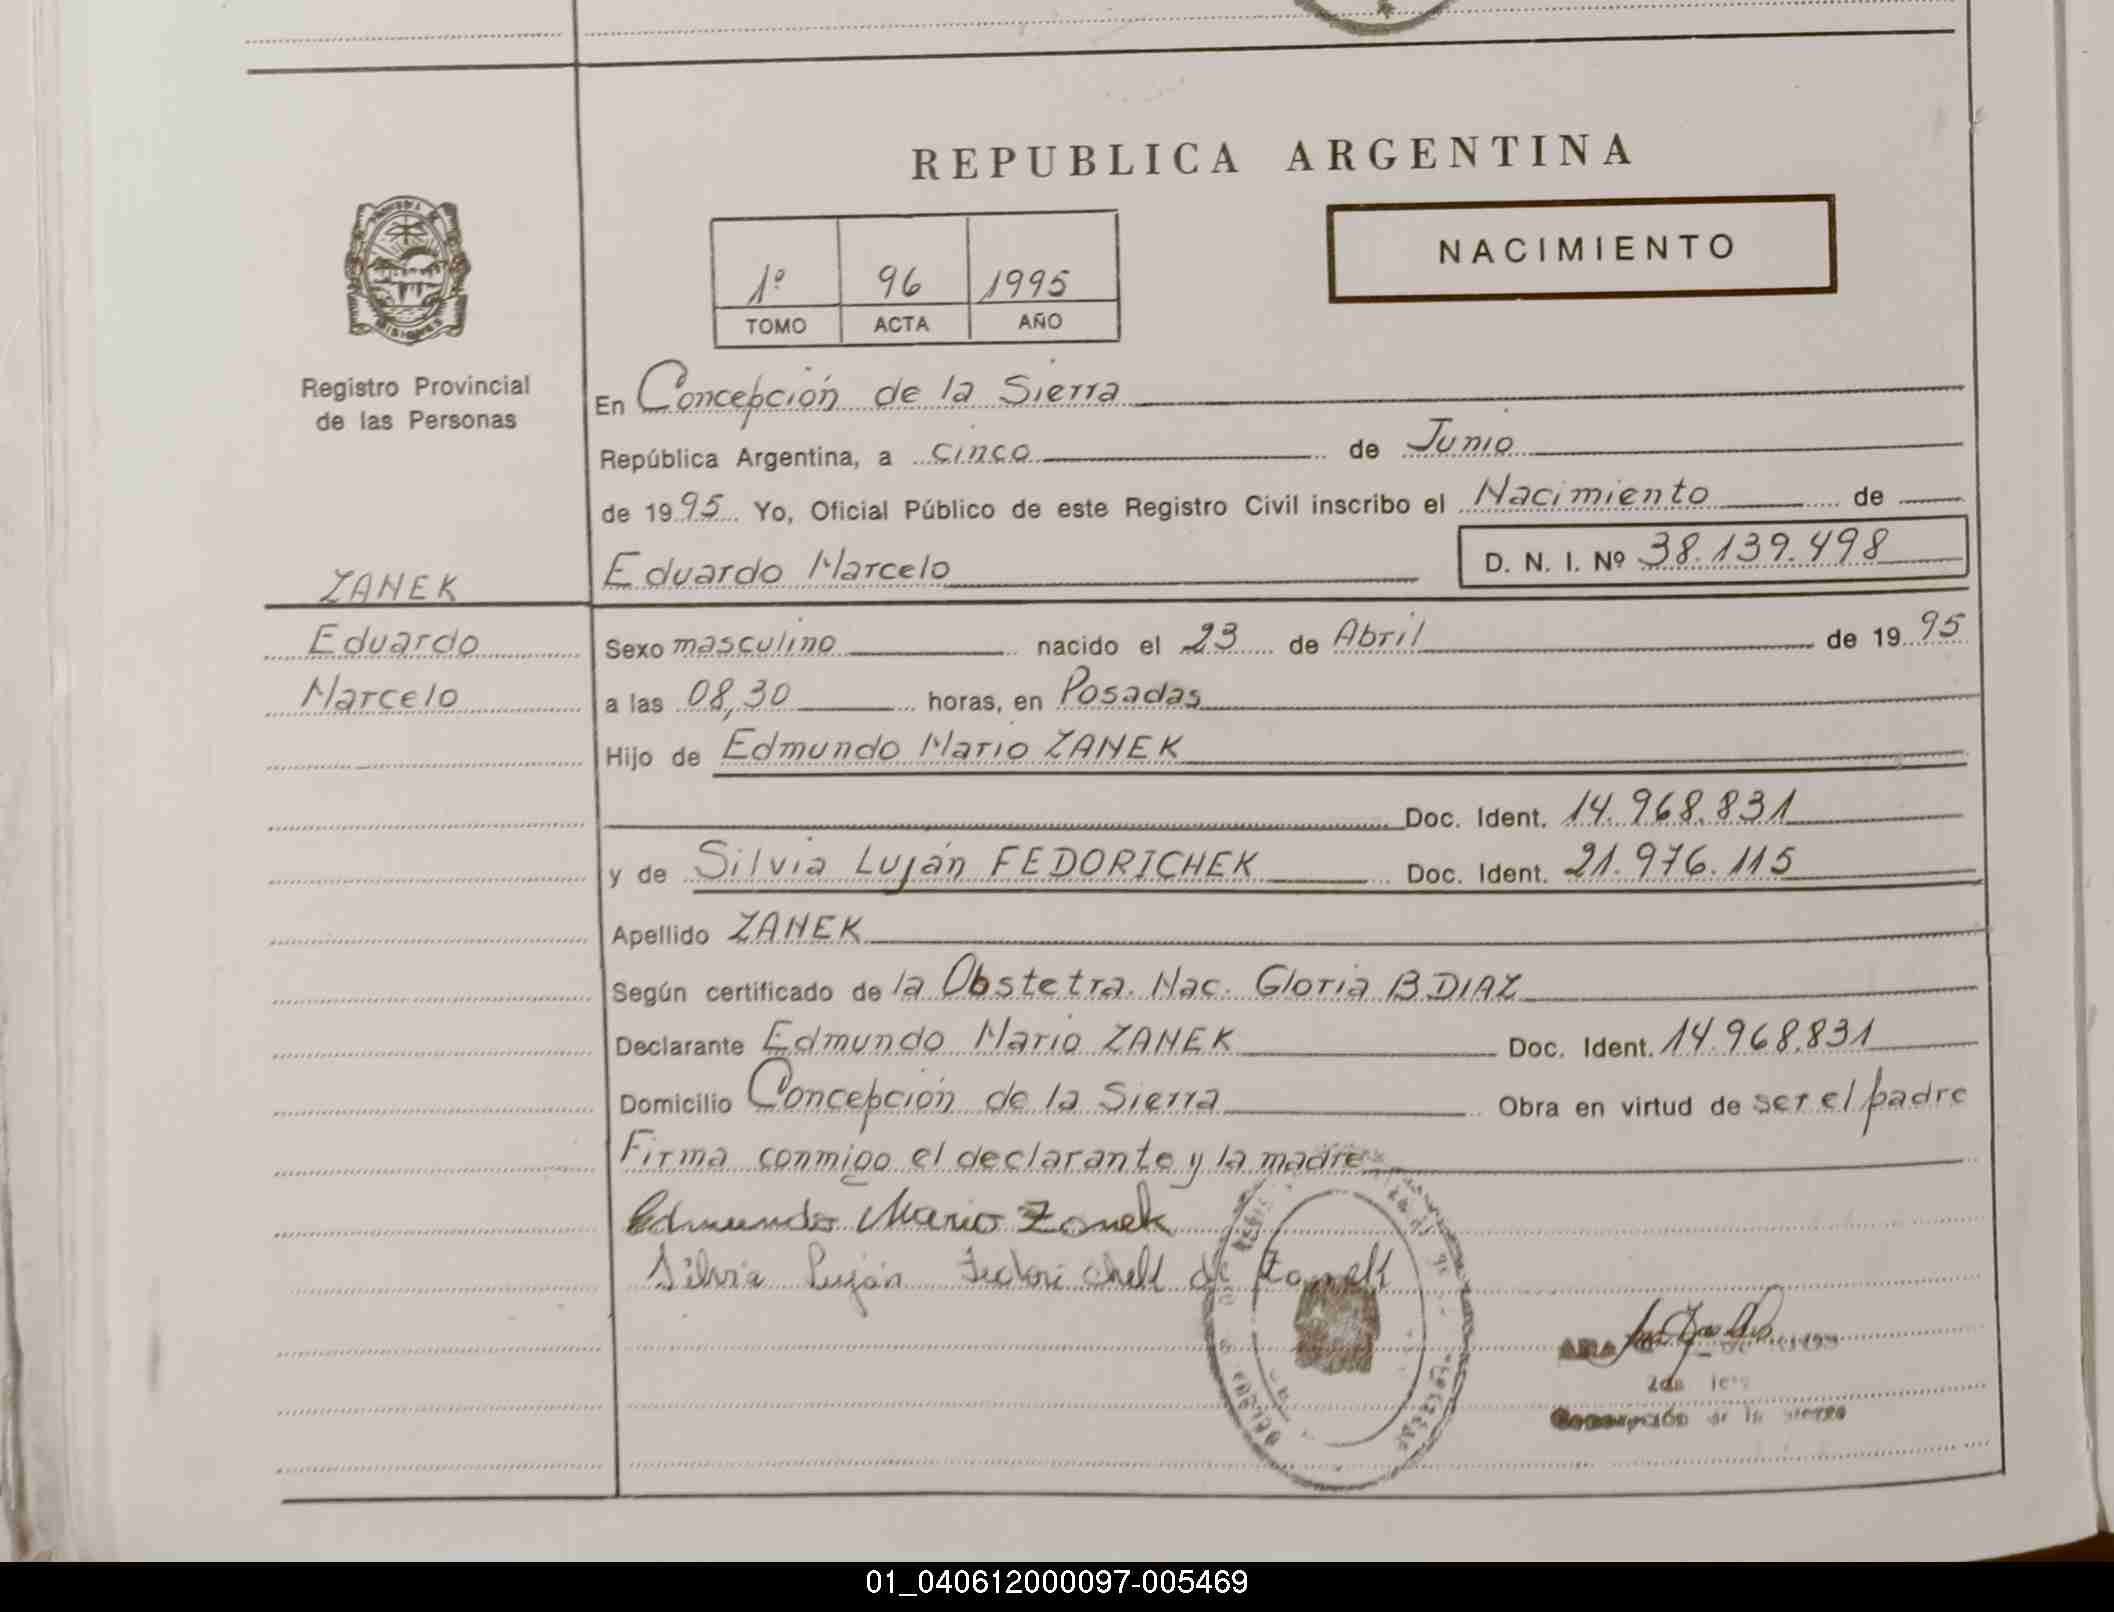 REPUBLICA ARGENTINA
NACIMIENTO
1º 96 1995
TOMO ACTA AÑO
MISIONES
Registro Provincial
de las Personas
En Concepción de la Sierra
República Argentina, a cinco de Junio
de 1995 Yo, Oficial Público de este Registro Civil inscribo el Nacimiento de
Eduardo Marcelo D. N. I. Nº 38.139.498
ZANEK
Eduardo
Marcelo
Sexo masculino nacido el 23 de Abril de 1995
a las 08,30 horas, en Posadas
Hijo de Edmundo Mario ZANEK
Doc. Ident. 14.968.831
y de Silvia Luján FEDORICHEK Doc. Ident. 21.976.115
Apellido ZANEK
Según certificado de la Obstetra. Nac. Gloria B. DIAZ
Declarante Edmundo Mario ZANEK Doc. Ident. 14.968.831
Domicilio Concepción de la Sierra Obra en virtud de ser el padre
Firma conmigo el declarante y la madre
Edmundo Mario Zanek
Silvia Luján Fedorichek de Zanek
Concepción de la Sierra
01_040612000097-005469